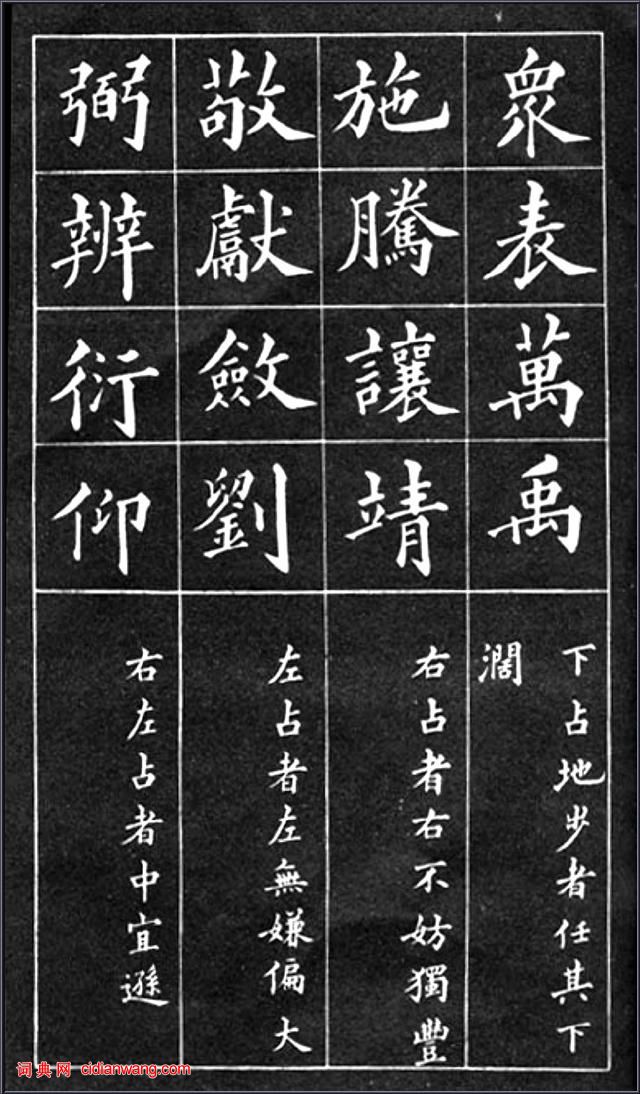 眾表萬禹
下占地步者任其下
濶
施騰讓靖
右占者右不妨獨豐
敬獻斂劉
左占者左無嫌偏大
弼辨衍仰
右左占者中宜遜
词典网 cidianwang.com